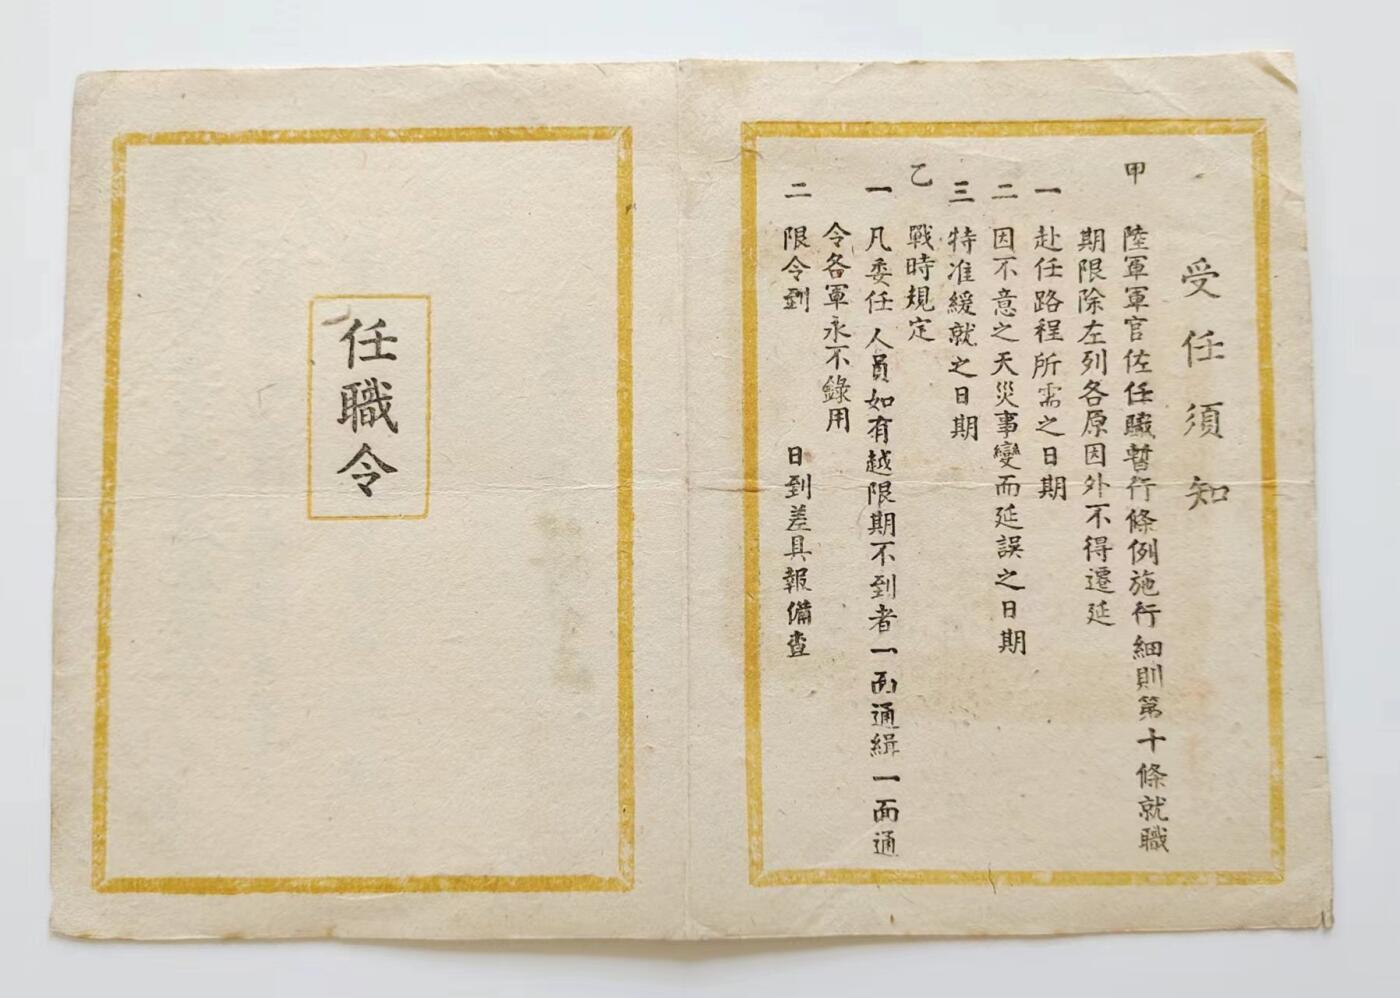 受任須知
甲 陸軍軍官佐任職暫行條例施行細則第十條就職
期限除左列各原因外不得遷延
一 赴任路程所需之日期
二 因不意之天災事變而延誤之日期
三 特准緩就之日期
乙 戰時規定
一 凡委任人員如有越限期不到者一面通緝一面通
令各軍永不錄用
二 限令到 日到差具報備查
任職令